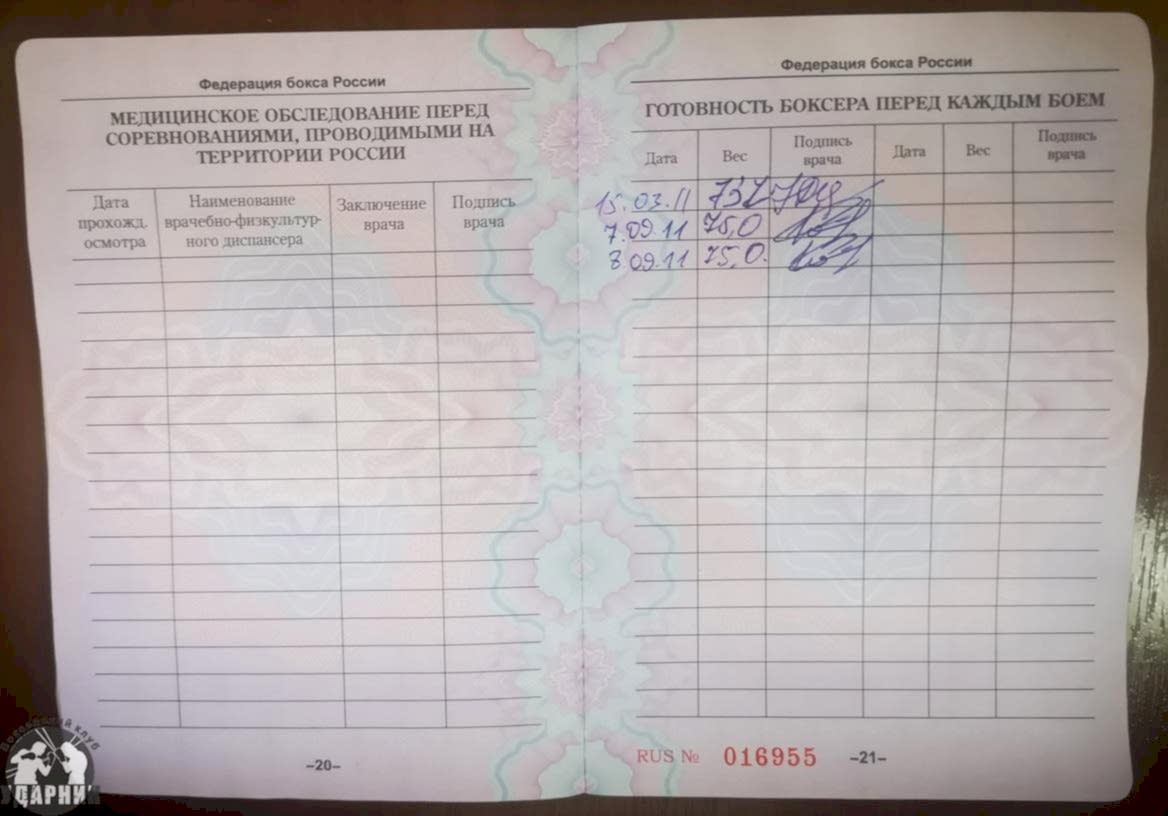 Федерация бокса России
МЕДИЦИНСКОЕ ОБСЛЕДОВАНИЕ ПЕРЕД
СОРЕВНОВАНИЯМИ, ПРОВОДИМЫМИ НА
ТЕРРИТОРИИ РОССИИ
Дата
прохожд.
осмотра
Наименование
врачебно-физкультур-
ного диспансера
Заключение
врача
Подпись
врача
–20–
Федерация бокса России
ГОТОВНОСТЬ БОКСЕРА ПЕРЕД КАЖДЫМ БОЕМ
Дата Вес Подпись врача Дата Вес Подпись врача
15.03.11
7.09.11 75,0
8 09.11 75,0.
RUS № 016955 –21–
клуб
УДАРНИК